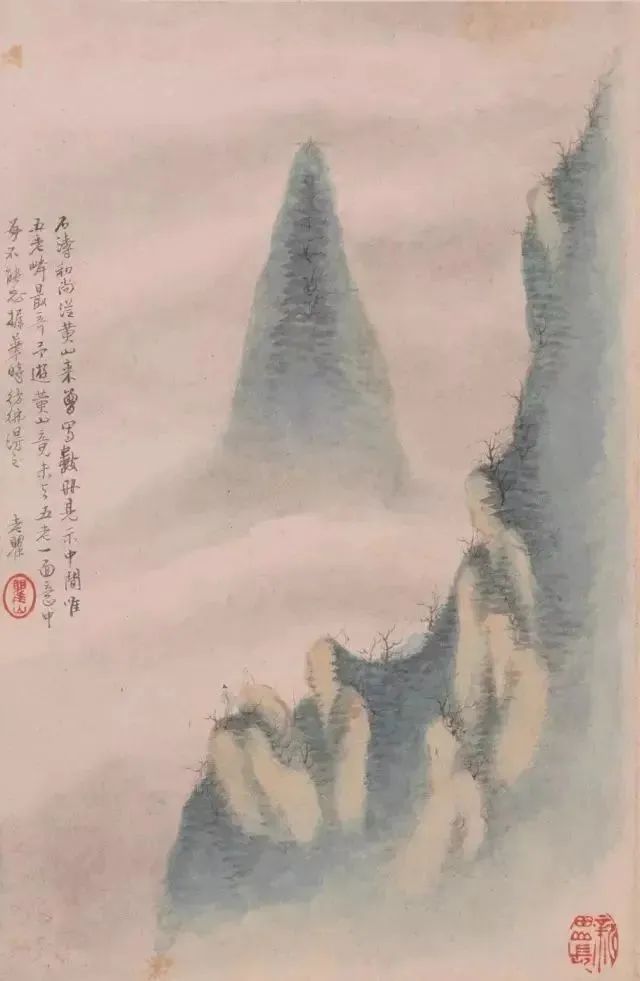 石濤和尚從黃山來曾寫數冊見示中間唯
五老峰最奇予遊黃山竟未与五老一面意中
每不能忘握筆時彷彿得之
老瞿